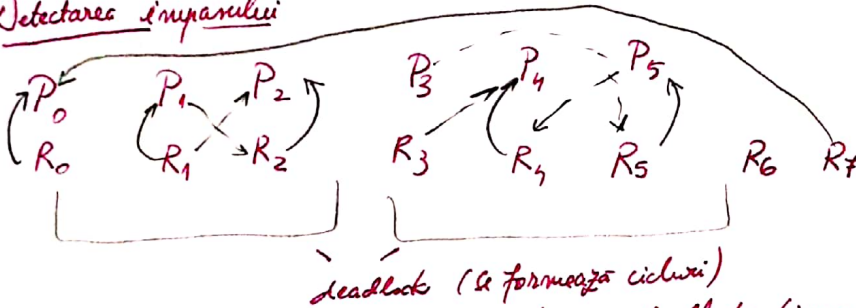 Detectarea impasului
P0 P1 P2 P3 P4 P5
R0 R1 R2 R3 R4 R5 R6 R7
deadlock (se formează cicluri)